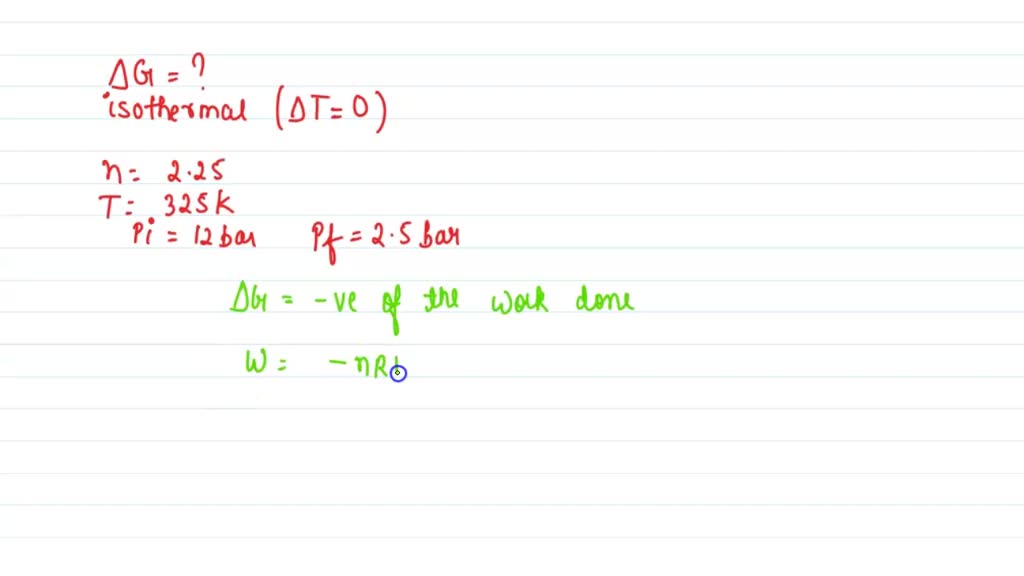 ΔG = ?
isothermal (ΔT = 0)
n = 2.25
T = 325K
Pi = 12 bar Pf = 2.5 bar
ΔG = -ve of the work done
W = -nR